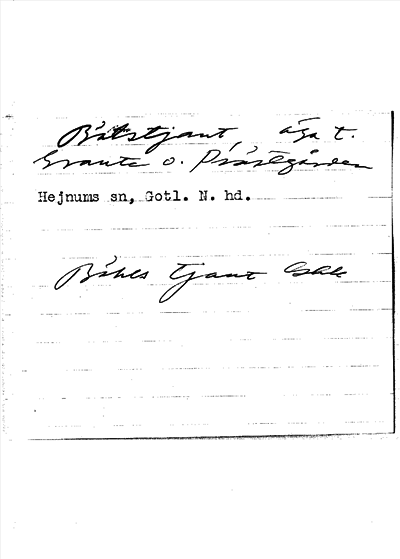 Båtstjaut, äga t.
Graute o. Prästgården
Hejnums sn, Gotl. N. hd.
Båtels Tjaut